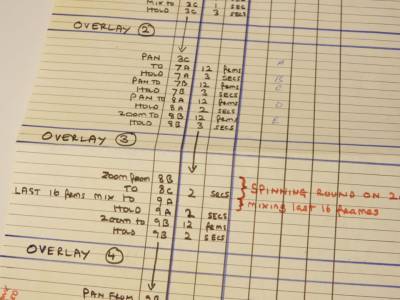 MIX TO 3C 1 SECS
HOLD 3C 3 SECS
OVERLAY 2
PAN 3C
TO 7A 12 frms A
HOLD 7A 3 SECS
PAN TO 7B 12 frms B
HOLD 7B 3 SECS C
PAN TO 8A 12 frms
HOLD 8A 2 SECS D
ZOOM TO 8B 12 frms
HOLD 8B 3 SECS E
OVERLAY 3
ZOOM from 8B
TO 8C 2 SECS SPINNING ROUND ON 2
LAST 16 frms MIX TO 9A MIXING last 16 frames
HOLD 9A 2 SECS
ZOOM TO 9B 12 frms
HOLD 9B 2 SECS
OVERLAY 4
PAN FROM 9B